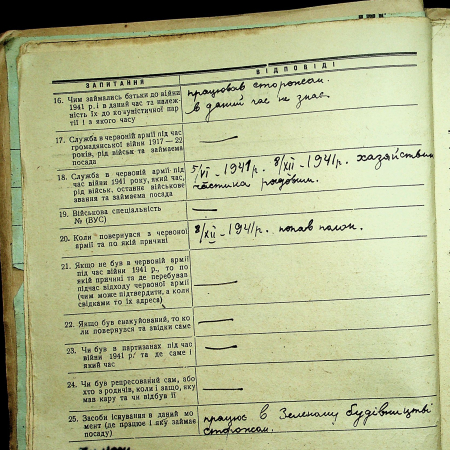 ЗАПИТАННЯ
ВІДПОВІДІ
16. Чим займались батьки до війни
1941 р. і в даний час та належ-
ність їх до комуністичної пар
тії і з якого часу
працював сторожем.
в даний час не знає.
17. Служба в червоній армії під час
громадянської війни 1917 — 22
років, рід військ та займаєма
посада
—
18. Служба в червоній армії під
час війни 1941 року, який час,
рід військ, останнє військове
звання та займаєма посада
5/VI - 1941 р. 8/XII - 1941 р.
рядовим.
19. Військова спеціальність
№ (ВУС)
—
20. Коли повернувся з червоної
армії та по якій причині
8/XII - 1941 р. попав полон.
21. Якщо не був в червоній армії
під час війни 1941 р., то по
якій причині та де перебував
підчас відходу червоної армії
(чим може підтвердити, а коли
свідками то їх адреса)
—
22. Якщо був евакуйований, то ко
ли повернувся та звідки саме
—
23. Чи був в партизанах під час
війни 1941 р. та де саме і
який час
—
24. Чи був репресований сам, або
хто з родичів, коли і защо, яку
мав кару та чи відбув її
—
25. Засоби існування в даний мо
мент (де працює і яку займає
посаду)
працює в Зеленому будівництві
сторожем.